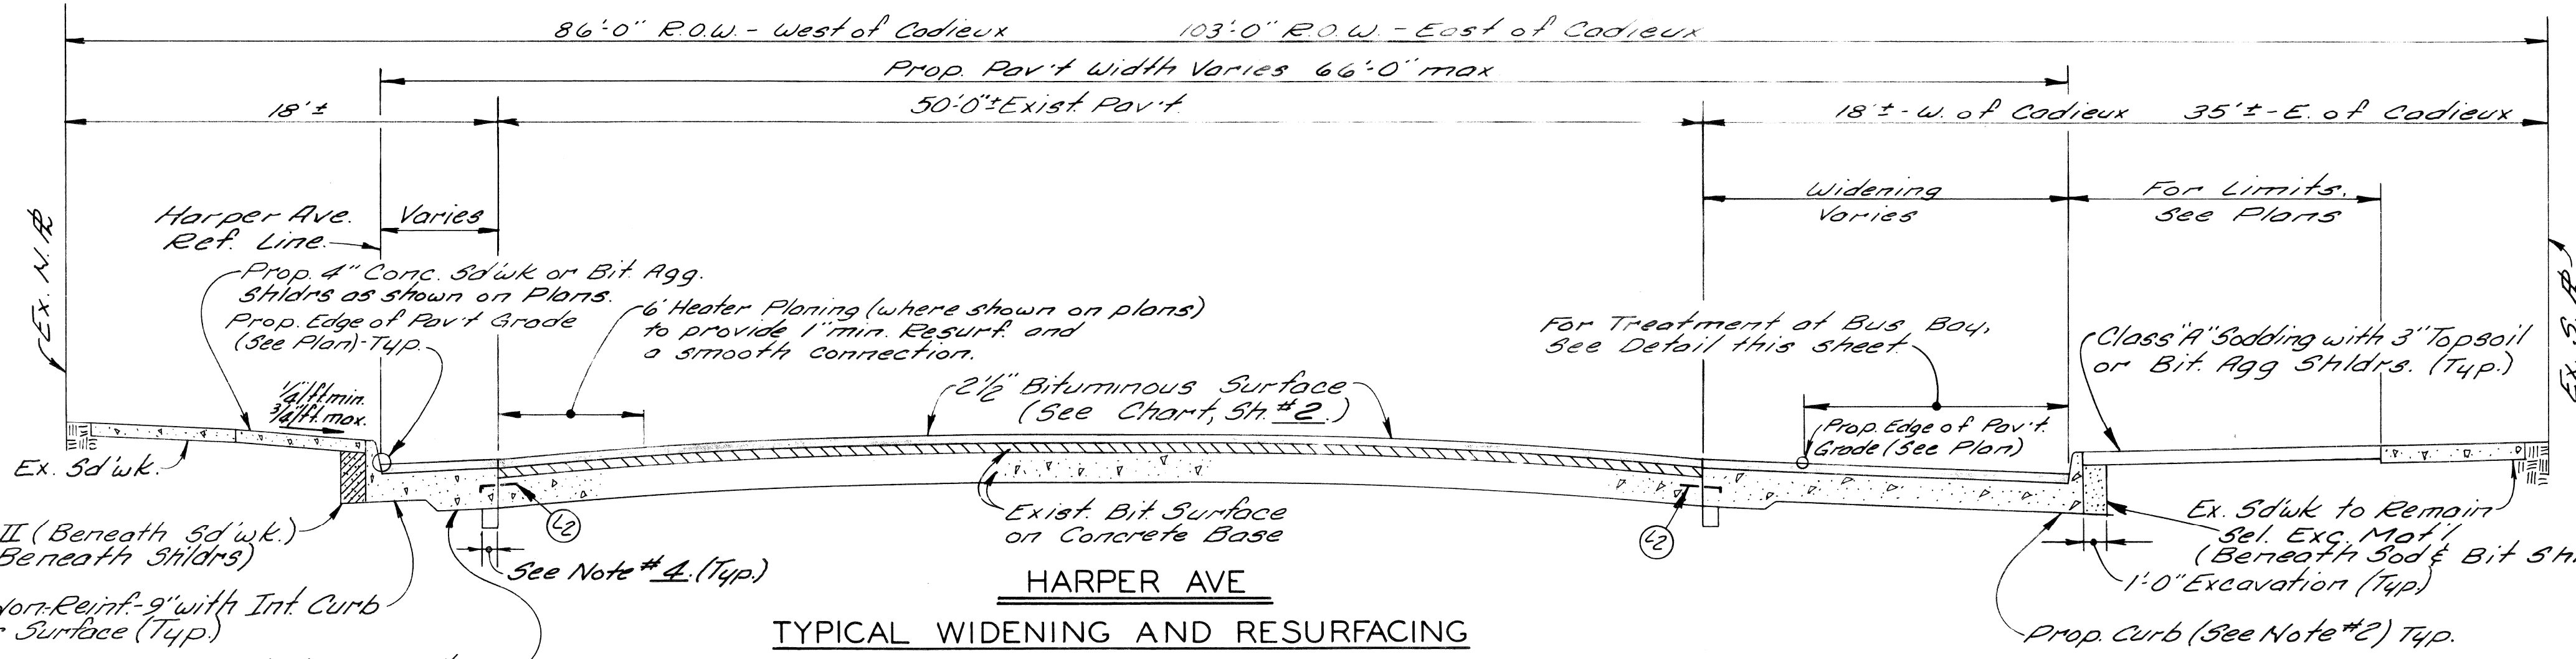 86'-0" R.O.W. - West of Cadieux 103'-0" R.O.W. - East of Cadieux
Prop. Pav't Width Varies 66'-0" max
18'± 50'-0"± Exist. Pav't. 18'± - W. of Cadieux 35'± - E. of Cadieux
Widening
Varies
For Limits,
See Plans
Harper Ave.
Ref. Line
Varies
Ex. N. PL
Ex. S. PL
Prop. 4" Conc. Sd'wk or Bit. Agg.
Shldrs as shown on Plans.
Prop. Edge of Pav't Grade
(See Plan)-Typ.
6' Heater Planing (where shown on plans)
to provide 1" min. Resurf. and
a smooth connection.
For Treatment at Bus Bay,
See Detail this sheet.
Class "A" Sodding with 3" Topsoil
or Bit. Agg Shldrs. (Typ.)
1/4"/ft. min.
3/4"/ft. max.
2 1/2" Bituminous Surface
(See Chart, Sh. #2.)
Prop. Edge of Pav't.
Grade (See Plan)
Ex. Sd'wk.
L2
Exist. Bit Surface
on Concrete Base
L2
Ex. Sd'wk to Remain
Sel. Exc. Mat'l
(Beneath Sod & Bit Sh
1'-0" Excavation (Typ.)
II (Beneath Sd'wk.)
Beneath Shldrs)
See Note #4. (Typ.)
Non-Reinf.-9" with Int. Curb
Surface (Typ.)
Prop. Curb (See Note #2) Typ.
HARPER AVE
TYPICAL WIDENING AND RESURFACING